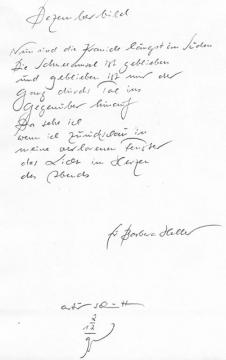 Dezemberbild
Nun sind die Kraniche längst im Süden
Die Schneeamsel ist geblieben
und geblieben ist nur der
Gang durchs Tal ins
Gegenüber hinauf
Da sehe ich
wenn ich zurückschau in
meine verlorenen Fenster
das Licht im Herzen
des Abends
für Barbara Heller